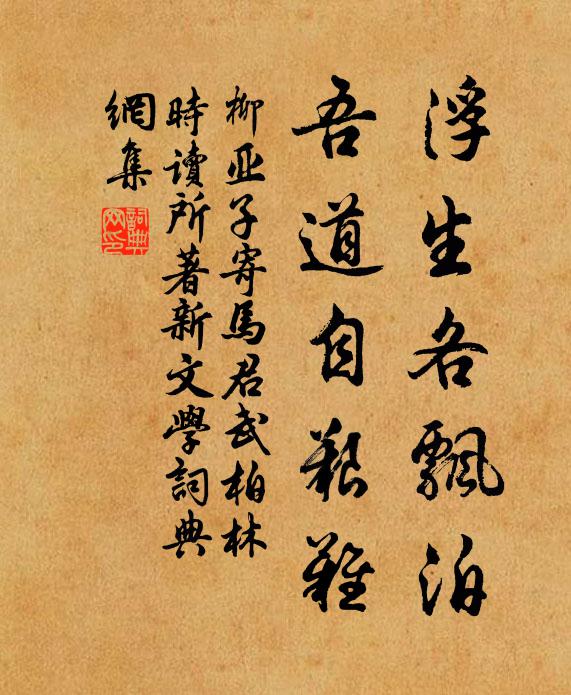 浮生各飄泊
吾道自艱難
柳亚子寄馬君武柏林
時讀所著新文學詞典
網集
詞典
网印